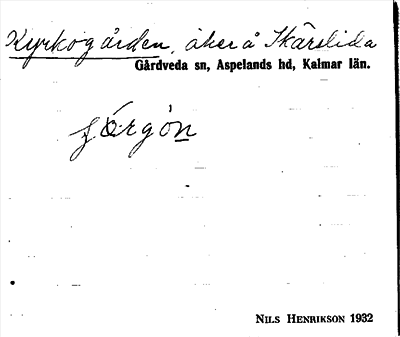 Kyrkogården, åker å Skärslida
Gårdveda sn, Aspelands hd, Kalmar län.
NILS HENRIKSON 1932